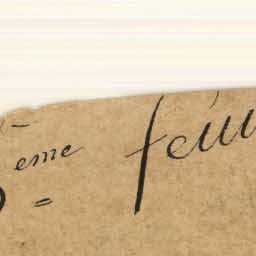 eme feui